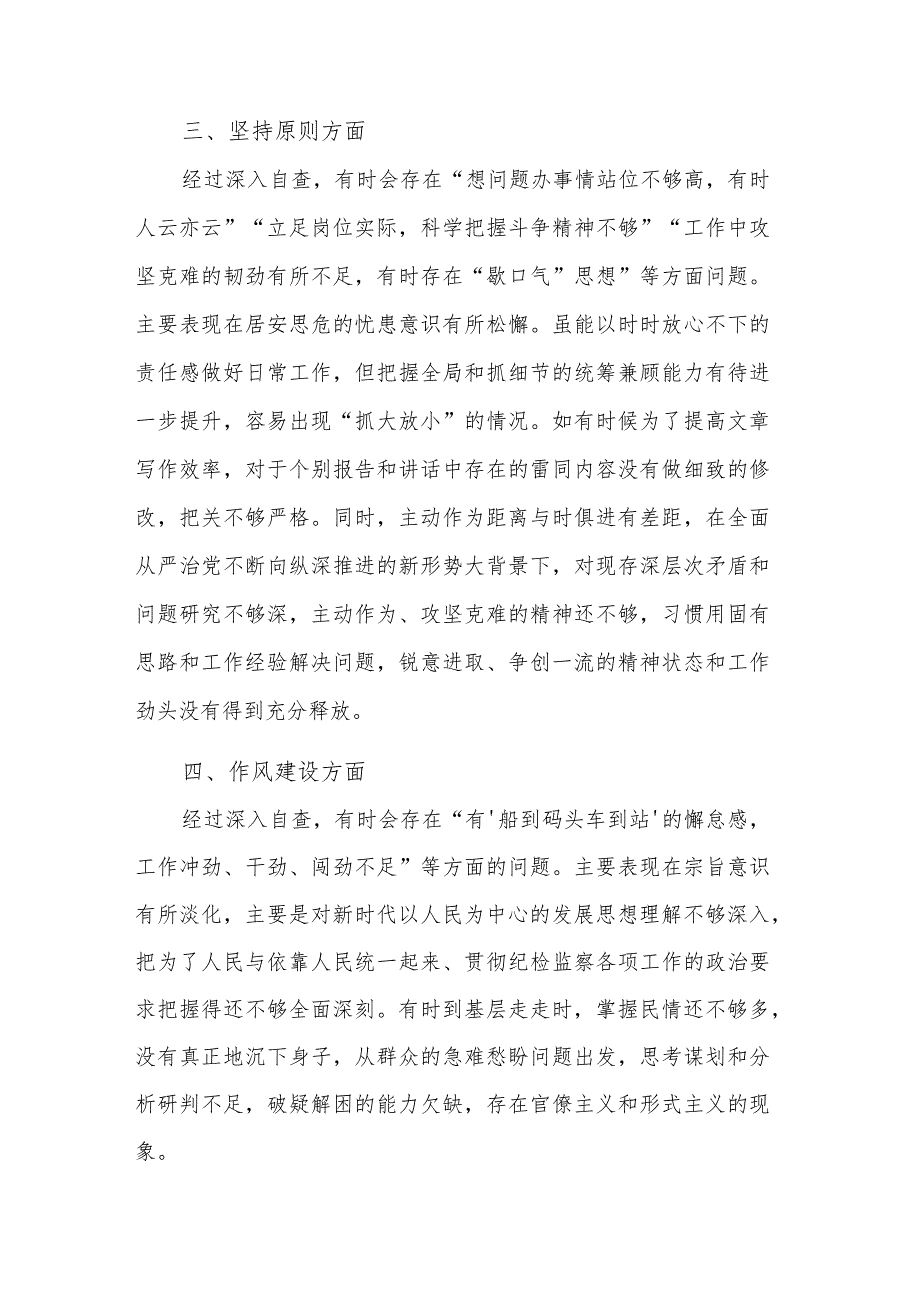 三、坚持原则方面
经过深入自查，有时会存在“想问题办事情站位不够高，有时
人云亦云”“立足岗位实际，科学把握斗争精神不够”“工作中攻
坚克难的韧劲有所不足，有时存在“歇口气”思想”等方面问题。
主要表现在居安思危的忧患意识有所松懈。虽能以时时放心不下的
责任感做好日常工作，但把握全局和抓细节的统筹兼顾能力有待进
一步提升，容易出现“抓大放小”的情况。如有时候为了提高文章
写作效率，对于个别报告和讲话中存在的雷同内容没有做细致的修
改，把关不够严格。同时，主动作为距离与时俱进有差距，在全面
从严治党不断向纵深推进的新形势大背景下，对现存深层次矛盾和
问题研究不够深，主动作为、攻坚克难的精神还不够，习惯用固有
思路和工作经验解决问题，锐意进取、争创一流的精神状态和工作
劲头没有得到充分释放。
四、作风建设方面
经过深入自查，有时会存在“有'船到码头车到站'的懈怠感，
工作冲劲、干劲、闯劲不足”等方面的问题。主要表现在宗旨意识
有所淡化，主要是对新时代以人民为中心的发展思想理解不够深入，
把为了人民与依靠人民统一起来、贯彻纪检监察各项工作的政治要
求把握得还不够全面深刻。有时到基层走走时，掌握民情还不够多，
没有真正地沉下身子，从群众的急难愁盼问题出发，思考谋划和分
析研判不足，破疑解困的能力欠缺，存在官僚主义和形式主义的现
象。